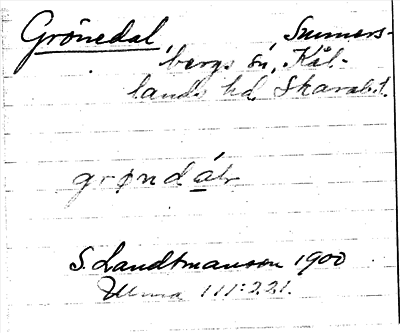 Grönedal, Summers-
bergs sn, Kål-
lands hd, Skarab.l.
grønd
S. Landtmanson 1900
111:221.